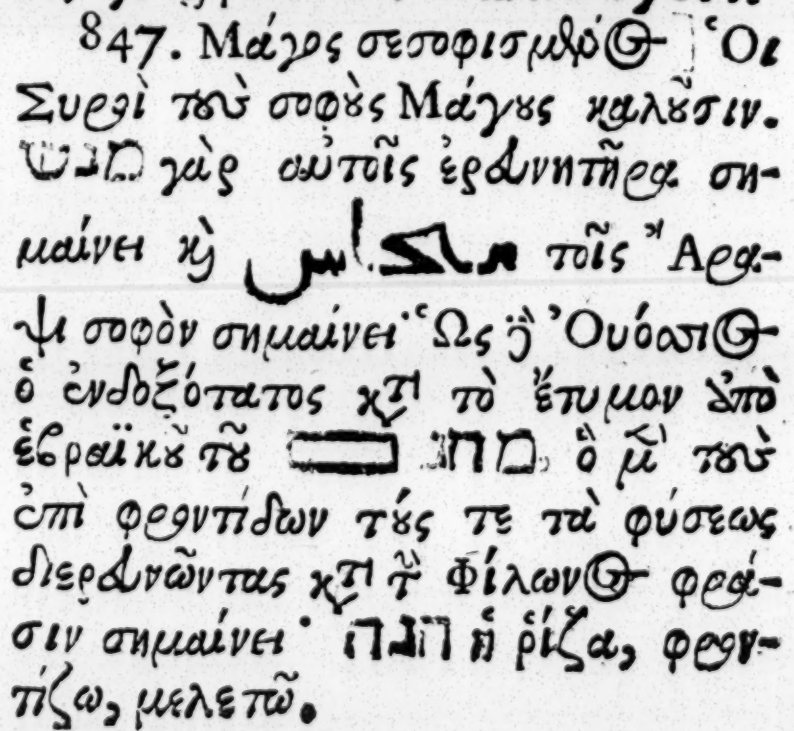 847. Μάγος σεσοφισμένος Ὁι
Συροὶ τοὺς σοφοὺς Μάγους καλοῦσιν.
מגש γὰρ αὐτοῖς ἐρευνητῆρα ση-
μαίνει καὶ مكاس τοῖς Ἄρα-
ψι σοφὸν σημαίνει· Ὡς δὲ Ὀυόσσιος
ὁ ἐνδοξότατος κατὰ τὸ ἔτυμον ἀπὸ
ἑβραϊκοῦ τοῦ מהגים ὃ μὲν τοὺς
ἐπὶ φροντίδων τούς τε τὰ φύσεως
διερευνῶντας κατὰ τὴν Φίλωνος φρά-
σιν σημαίνει· הגה ἡ ῥίζα, φρον-
τίζω, μελετῶ.